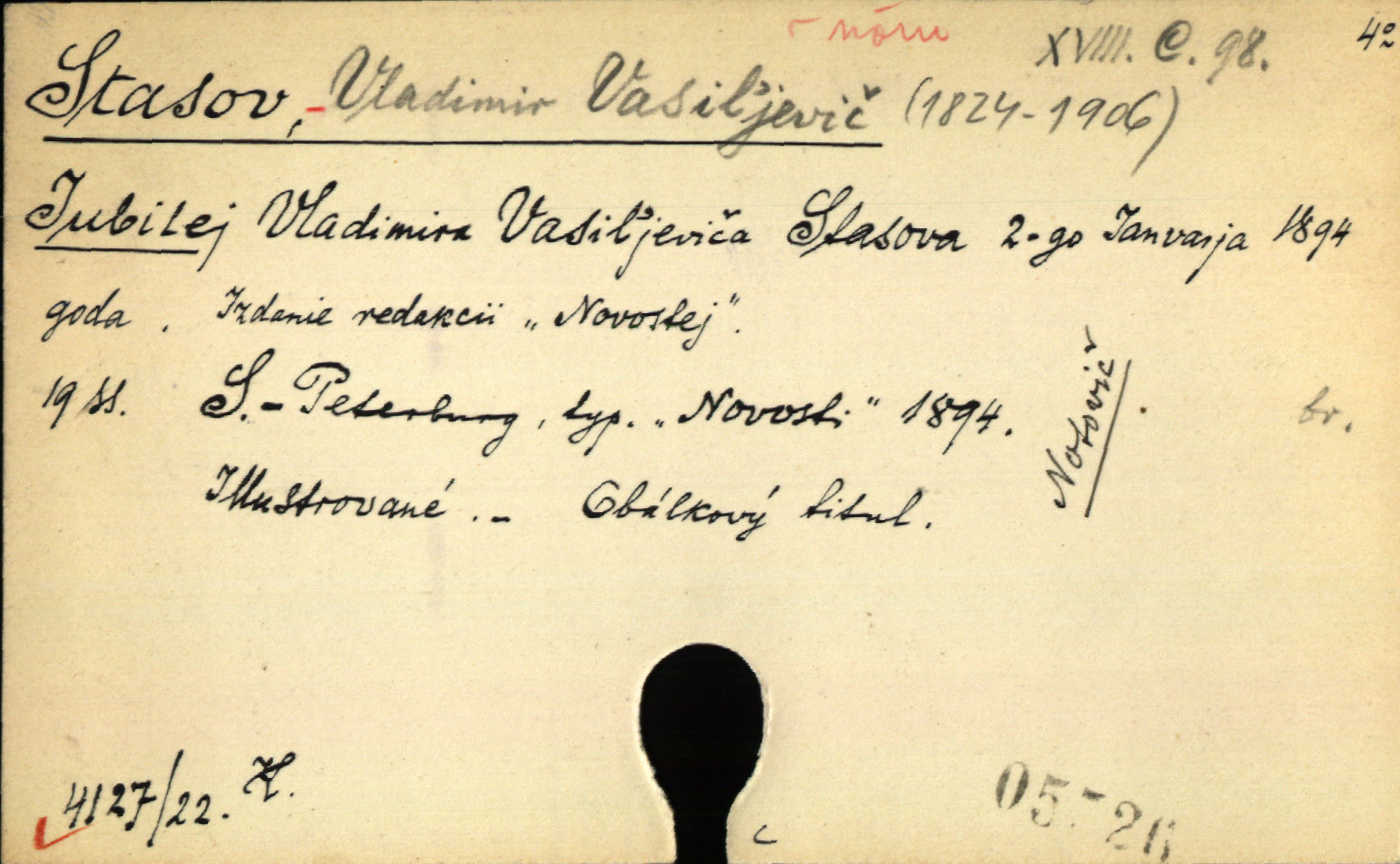 XVIII. C. 98. 4º
Stasov, Vladimir Vasil'jevič (1824-1906)
Jubilej Vladimira Vasil'jeviča Stasova 2-go Janvarja 1894
goda. Izdanie redakcii „Novostej".
19 ss. S.-Peterburg, typ. „Novosti" 1894.
Notovič.
br.
Illustrované. - Obálkový titul.
4127/22. K.